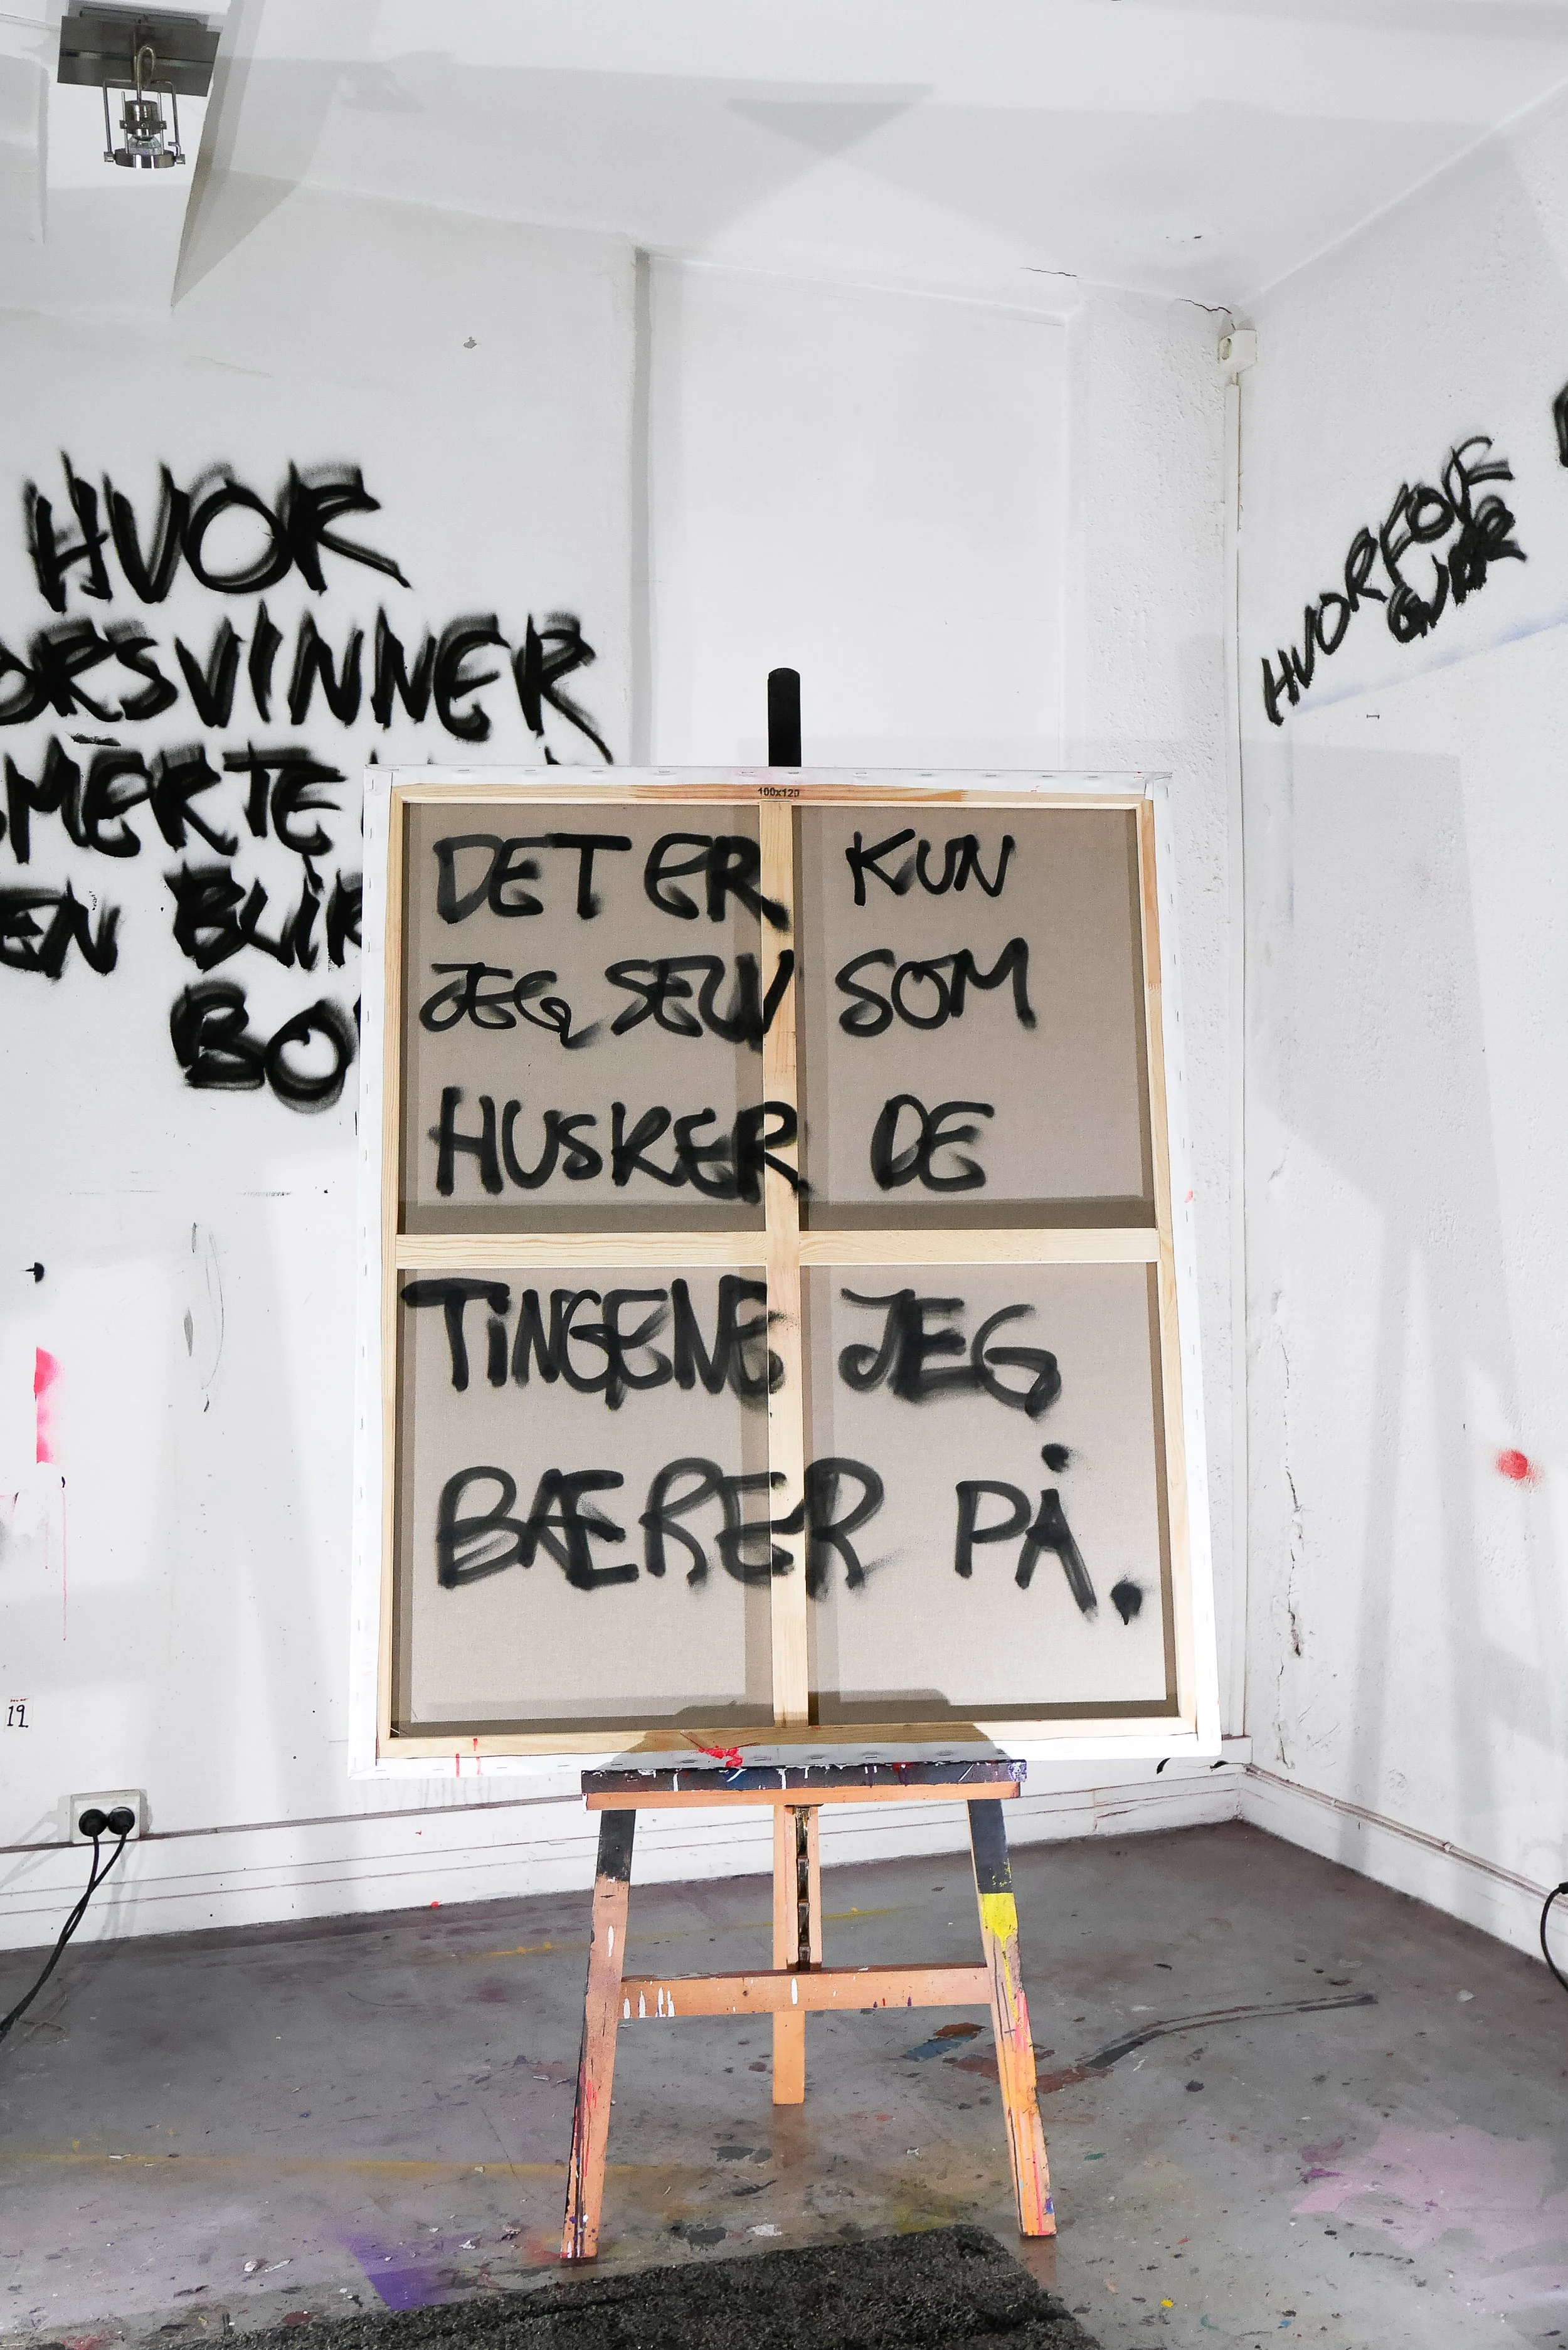 HVOR
ORSVINNER
MERTE
EN BLIR
BO
100x120
DET ER KUN
JEG SELV SOM
HUSKER DE
TINGENE JEG
BÆRER PÅ.
HVORFOR
19